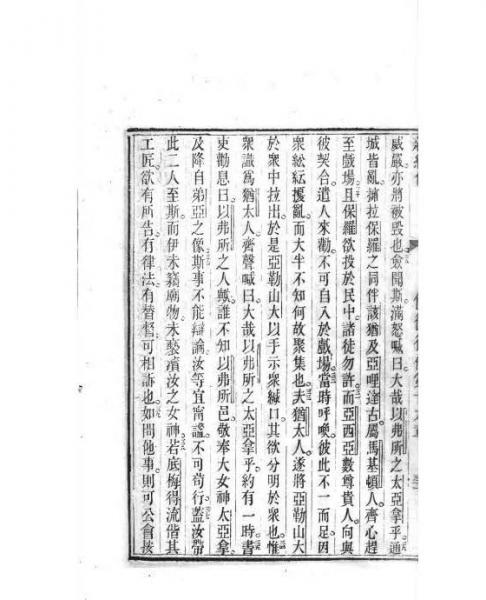 威嚴亦將被毀也僉聞斯滿怒喊曰大哉以弗所之太亞拿乎通
城皆亂擁拉保羅之同伴該猶及亞哩達古屬馬基頓人齊心趕
至戲場且保羅欲投於民中諸徒勿許而亞西亞數尊貴人向與
彼契合遣人來勸不可自入於戲場當時呼喚彼此不一而足因
眾紛紜擾亂而大半不知何故聚集也夫猶太人遂將亞勒山大
於眾中拉出於是亞勒山大以手示眾緘口其欲分明於眾也惟
眾識為猶太人齊聲喊曰大哉以弗所之太亞拿乎約有一時書
吏勸息曰以弗所之人歟誰不知以弗所邑敬奉大女神太亞拿
及降自弟亞之像斯事不能辯論汝等宜甯謐不可苟行蓋汝帶
此二人至斯而伊未竊廟物未褻瀆汝之女神若底梅得流偕其
工匠欲有所告有律法有督可相訴也如問他事則可公會按